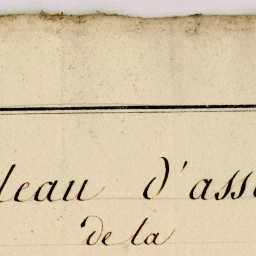 leau d'asse
de la